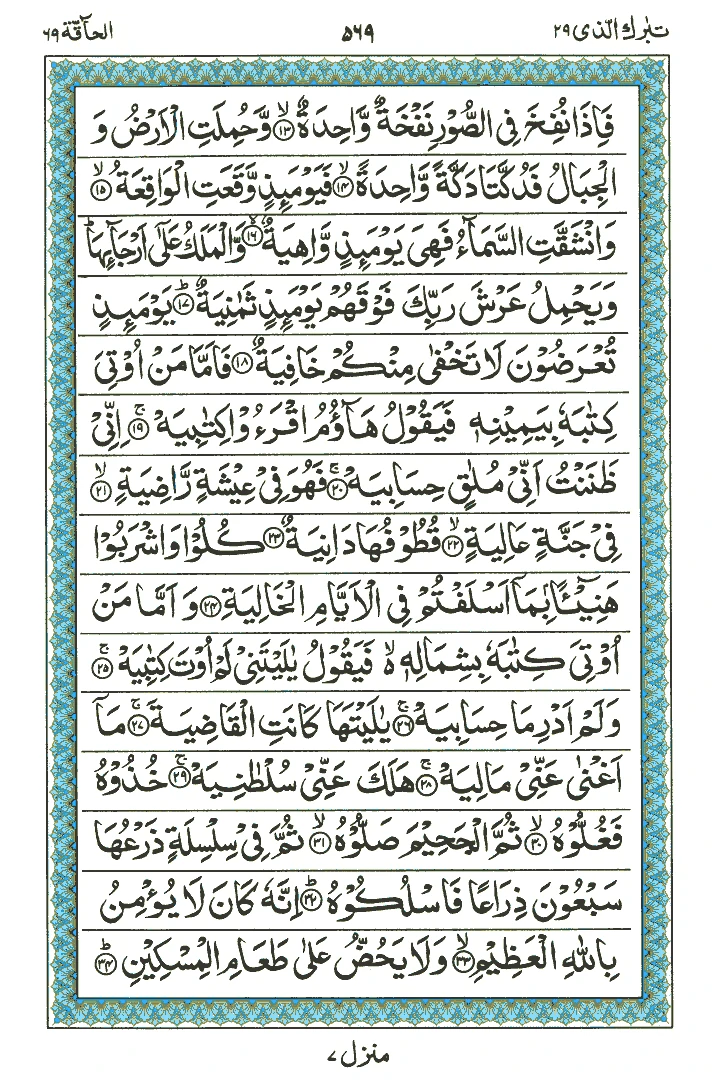 تبٰرك الّذی ٢٩
٥٦٩
الحآقّة ٦٩
فَاِذَا نُفِخَ فِی الصُّوْرِ نَفْخَةٌ وَّاحِدَةٌ ۙ﴿١٣﴾ وَّحُمِلَتِ الْاَرْضُ وَ
الْجِبَالُ فَدُكَّتَا دَكَّةً وَّاحِدَةً ۙ﴿١٤﴾ فَيَوْمَىِٕذٍ وَّقَعَتِ الْوَاقِعَةُ ۙ﴿١٥﴾
وَانْشَقَّتِ السَّمَآءُ فَهِیَ يَوْمَىِٕذٍ وَّاهِيَةٌ ۙ﴿١٦﴾ وَّالْمَلَكُ عَلٰۤی اَرْجَآىِٕهَا ؕ
وَيَحْمِلُ عَرْشَ رَبِّكَ فَوْقَهُمْ يَوْمَىِٕذٍ ثَمٰنِيَةٌ ؕ﴿١٧﴾ يَوْمَىِٕذٍ
تُعْرَضُوْنَ لَا تَخْفٰی مِنْكُمْ خَافِيَةٌ ﴿١٨﴾ فَاَمَّا مَنْ اُوْتِیَ
كِتٰبَهٗ بِيَمِيْنِهٖ فَيَقُوْلُ هَآؤُمُ اقْرَءُوْا كِتٰبِيَهْ ۚ﴿١٩﴾ اِنِّیْ
ظَنَنْتُ اَنِّیْ مُلٰقٍ حِسَابِيَهْ ۚ﴿٢٠﴾ فَهُوَ فِیْ عِيْشَةٍ رَّاضِيَةٍ ۙ﴿٢١﴾
فِیْ جَنَّةٍ عَالِيَةٍ ۙ﴿٢٢﴾ قُطُوْفُهَا دَانِيَةٌ ﴿٢٣﴾ كُلُوْا وَاشْرَبُوْا
هَنِيْٓـًٔا بِمَاۤ اَسْلَفْتُمْ فِی الْاَيَّامِ الْخَالِيَةِ ﴿٢٤﴾ وَ اَمَّا مَنْ
اُوْتِیَ كِتٰبَهٗ بِشِمَالِهٖ ۙ۬ فَيَقُوْلُ يٰلَيْتَنِیْ لَمْ اُوْتَ كِتٰبِيَهْ ۚ﴿٢٥﴾
وَلَمْ اَدْرِ مَا حِسَابِيَهْ ۚ﴿٢٦﴾ يٰلَيْتَهَا كَانَتِ الْقَاضِيَةَ ۚ﴿٢٧﴾ مَاۤ
اَغْنٰی عَنِّیْ مَالِيَهْ ۚ﴿٢٨﴾ هَلَكَ عَنِّیْ سُلْطٰنِيَهْ ۚ﴿٢٩﴾ خُذُوْهُ
فَغُلُّوْهُ ۙ﴿٣٠﴾ ثُمَّ الْجَحِيْمَ صَلُّوْهُ ۙ﴿٣١﴾ ثُمَّ فِیْ سِلْسِلَةٍ ذَرْعُهَا
سَبْعُوْنَ ذِرَاعًا فَاسْلُكُوْهُ ؕ﴿٣٢﴾ اِنَّهٗ كَانَ لَا يُؤْمِنُ
بِاللّٰهِ الْعَظِيْمِ ۙ﴿٣٣﴾ وَلَا يَحُضُّ عَلٰی طَعَامِ الْمِسْكِيْنِ ؕ﴿٣٤﴾
منزل ٧